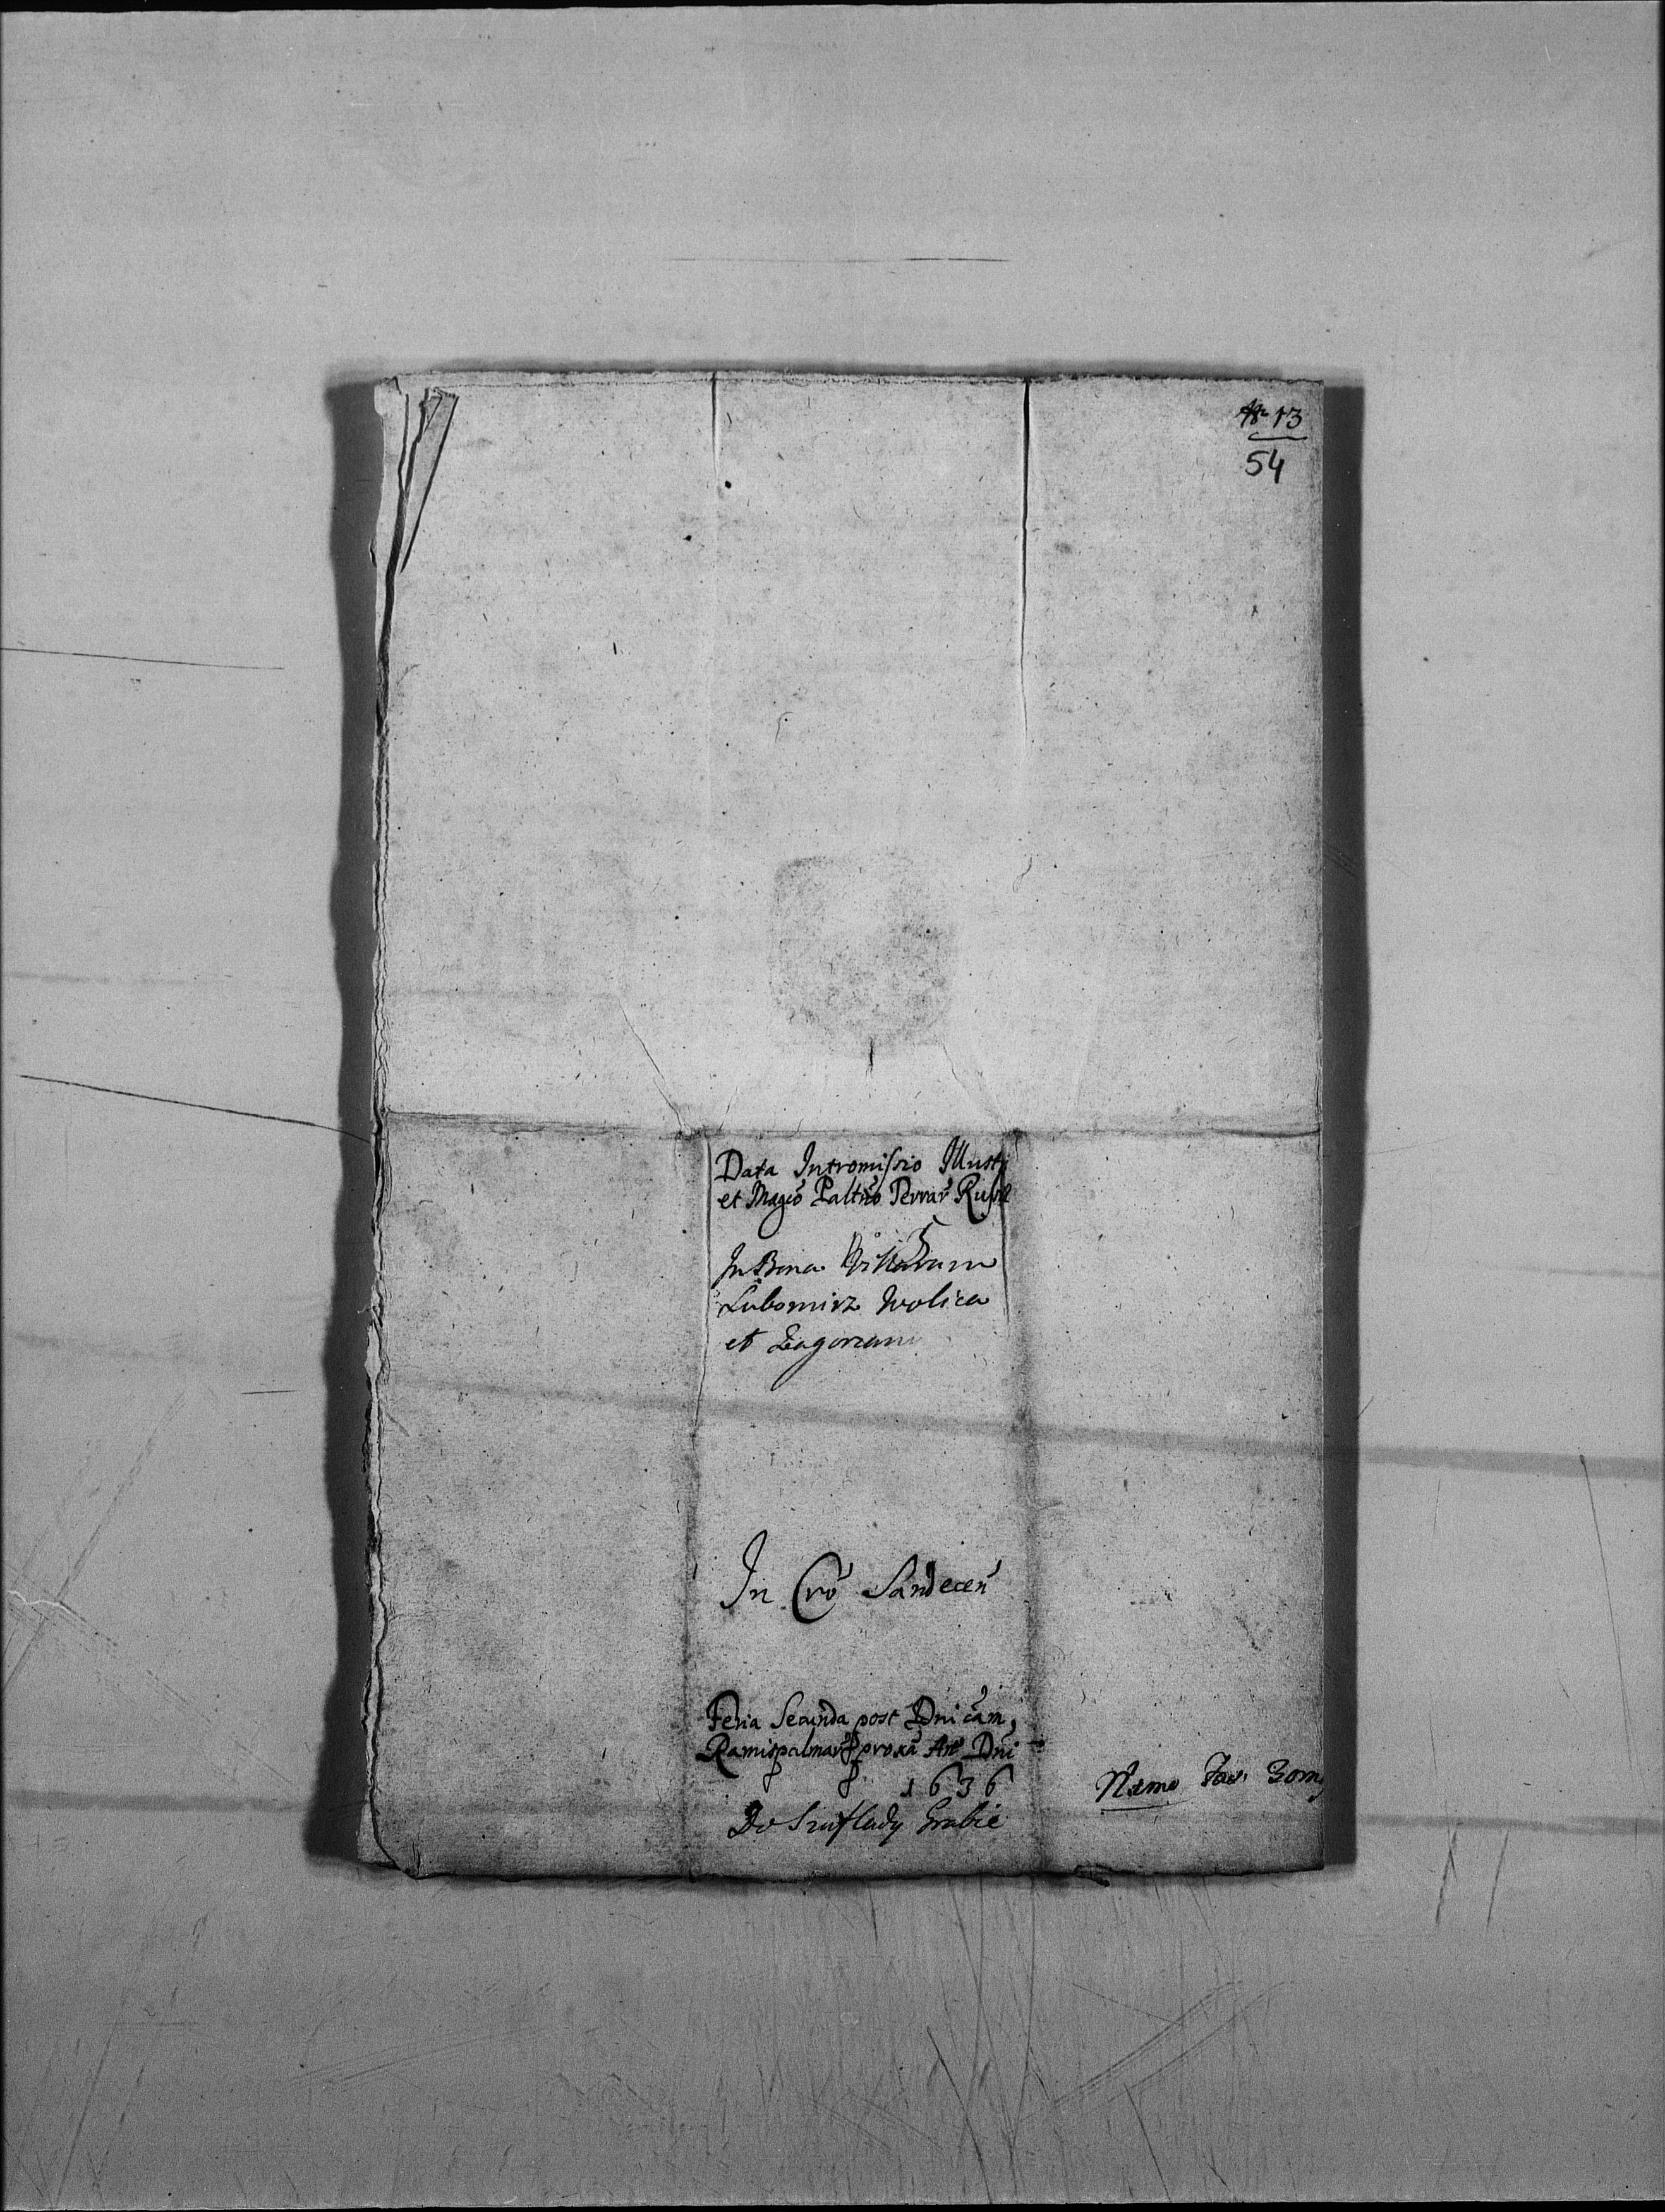 Nr 13
54
Data Intromissio Illustri
et Magco Paltno Terrar Russiae
In Bona Villarum
Lubomirz Wolica
et Zagorzani
In Cro Sandecen
Feria Secunda post Dnicam
Ramispalmar proxa Ano Dni
1636
Do Szuflady Grabie